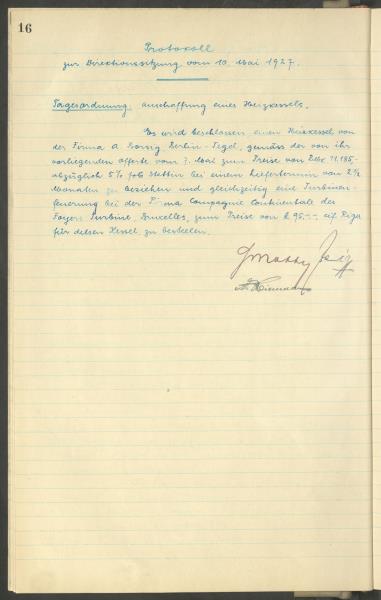 16
Protokoll
zur Direktionssitzung vom 10. Mai 1927.
Tagesordnung: Anschaffung eines Heizkessels.
Es wird beschlossen, einen Heizkessel von
der Firma A. Borsig, Berlin-Tegel, gemäss der von ihr
vorliegenden Offerte vom 7. Mai zum Preise von RMk 11.185.-
abzüglich 5% fob Stettin bei einem Liefertermin von 2½
Monaten zu beziehen und gleichzeitig eine Turbinen-
feuerung bei der Firma Compagnie Continentale des
Foyers Turbine, Bruxelles, zum Preise von £ 95.-- cif Riga
für diesen Kessel zu bestellen.